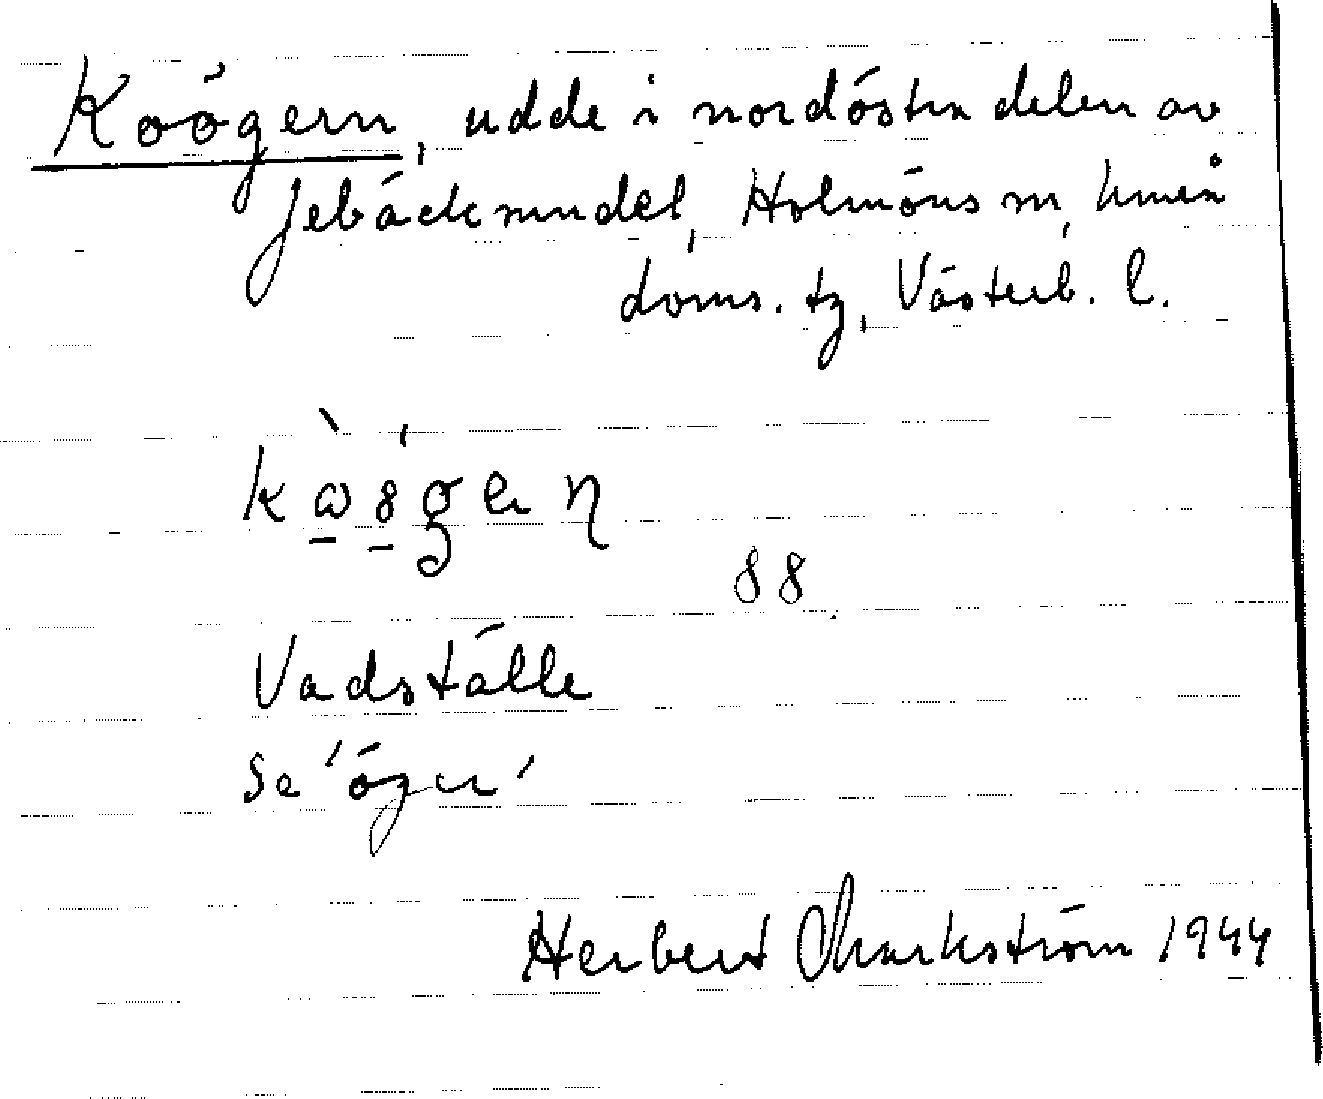 Koögern, udde i nordöstra delen av
Jebäcksundet, Holmöns sn, Umeå
doms. tg, Västerb. l.
88
Vadställe
Se 'ögern'
Herbert Markström 1944